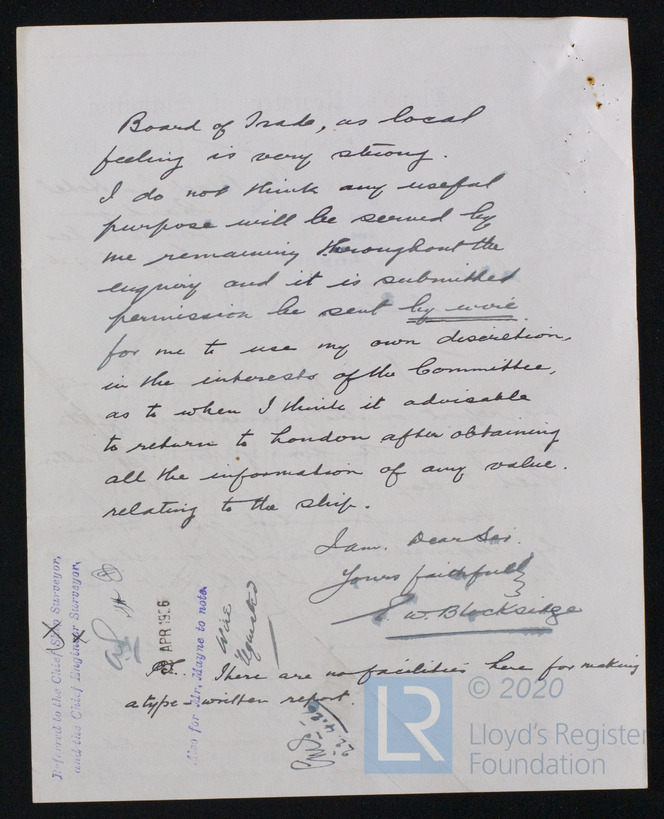 Board of Trade, as local
feeling is very strong.
I do not think any useful
purpose will be served by
me remaining throughout the
enquiry and it is submitted
permission be sent by wire
for me to use my own discretion,
in the interests of the Committee,
as to when I think it advisable
to return to London after obtaining
all the information of any value.
relating to the ship.
I am. Dear Sir.
Yours faithfully
E. W. Blocksidge
PS. There are no facilities here for making
a type-written report.
Referred to the Chief Ship Surveyor,
and the Chief Engineer Surveyor,
APR 1926
Also for Mr. Mayne to note.
wire
22.4.26
LR
© 2020
Lloyd's Register
Foundation